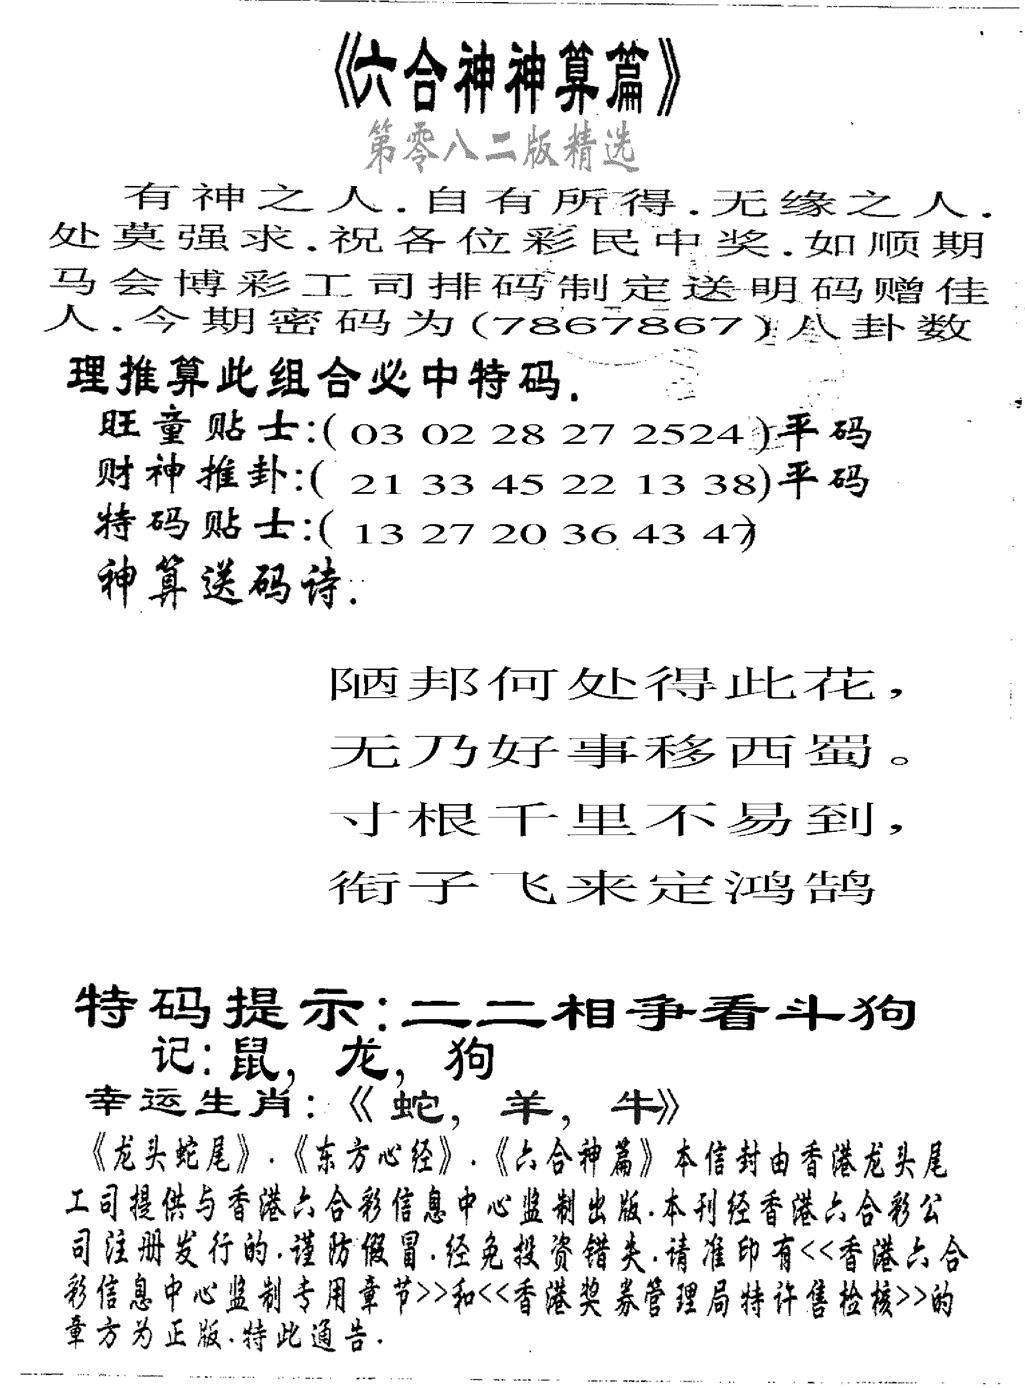 《六合神神算篇》
第零八二版精选
有神之人.自有所得.无缘之人.
处莫强求.祝各位彩民中奖.如顺期
马会博彩工司排码制定送明码赠佳
人.今期密码为(7867867)八卦数
理推算此组合必中特码.
旺童贴士:( 03 02 28 27 2524 )平码
财神推卦:( 21 33 45 22 13 38)平码
特码贴士:( 13 27 20 36 43 47)
神算送码诗.
陋邦何处得此花，
无乃好事移西蜀。
寸根千里不易到，
衔子飞来定鸿鹄
特码提示:二二相争看斗狗
记:鼠，龙，狗
幸运生肖:《蛇，羊，牛》
《龙头蛇尾》.《东方心经》.《六合神篇》本信封由香港龙头尾
工司提供与香港六合彩信息中心监制出版.本刊经香港六合彩公
司注册发行的.谨防假冒.经免投资错失.请准印有<<香港六合
彩信息中心监制专用章节>>和<<香港奖券管理局特许售检核>>的
章方为正版.特此通告.